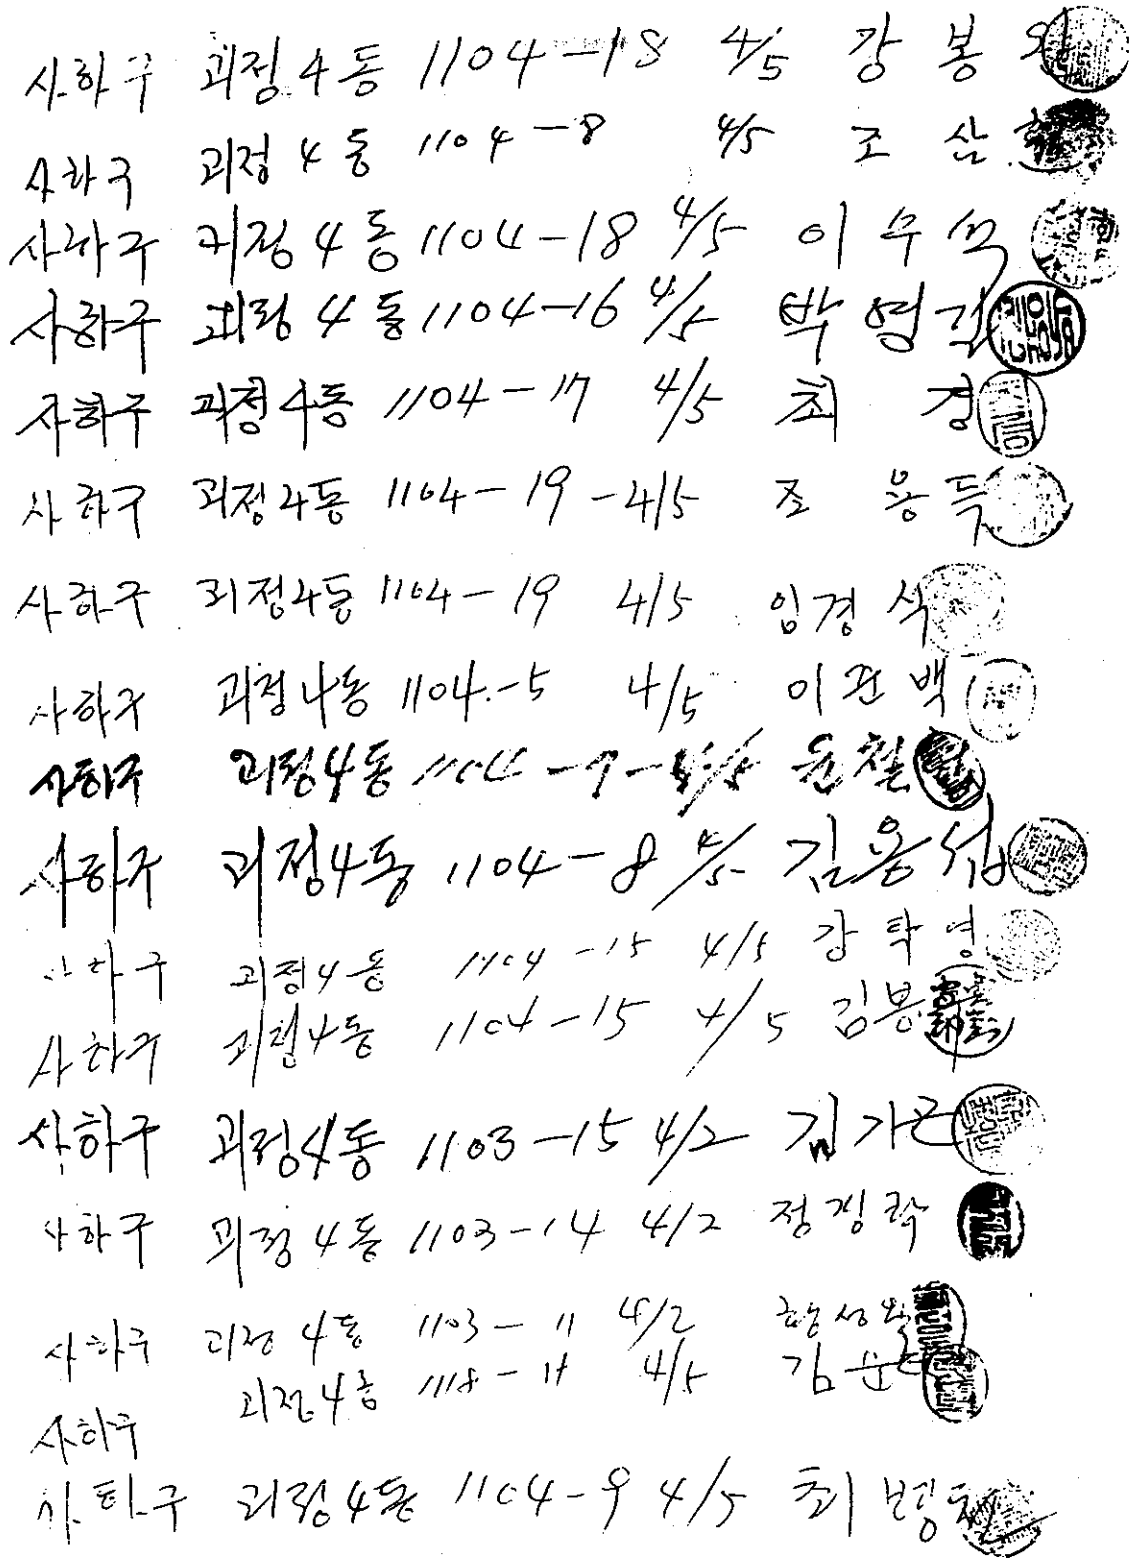 사하구 괴정4동 1104-18 4/5 강봉
사하구 괴정4동 1104-8 4/5 조삼
사하구 괴정4동 1104-18 4/5 이수석
사하구 괴정4동 1104-16 4/5 박영길
사하구 괴정4동 1104-17 4/5 최경
사하구 괴정4동 1104-19-4/5 조용득
사하구 괴정4동 1104-19 4/5 임경석
사하구 괴정4동 1104-5 4/5 이관백
사하구 괴정4동 1104-9-4/5 윤철
사하구 괴정4동 1104-8 4/5 김용섭
사하구 괴정4동 1104-15 4/5 강탁영
사하구 괴정4동 1104-15 4/5 김봉
사하구 괴정4동 1103-15 4/2 김기곤
사하구 괴정4동 1103-14 4/2 정징락
사하구 괴정4동 1103-11 4/2 황성
사하구 괴정4동 1118-11 4/5 김순
사하구 괴정4동 1104-9 4/5 최병